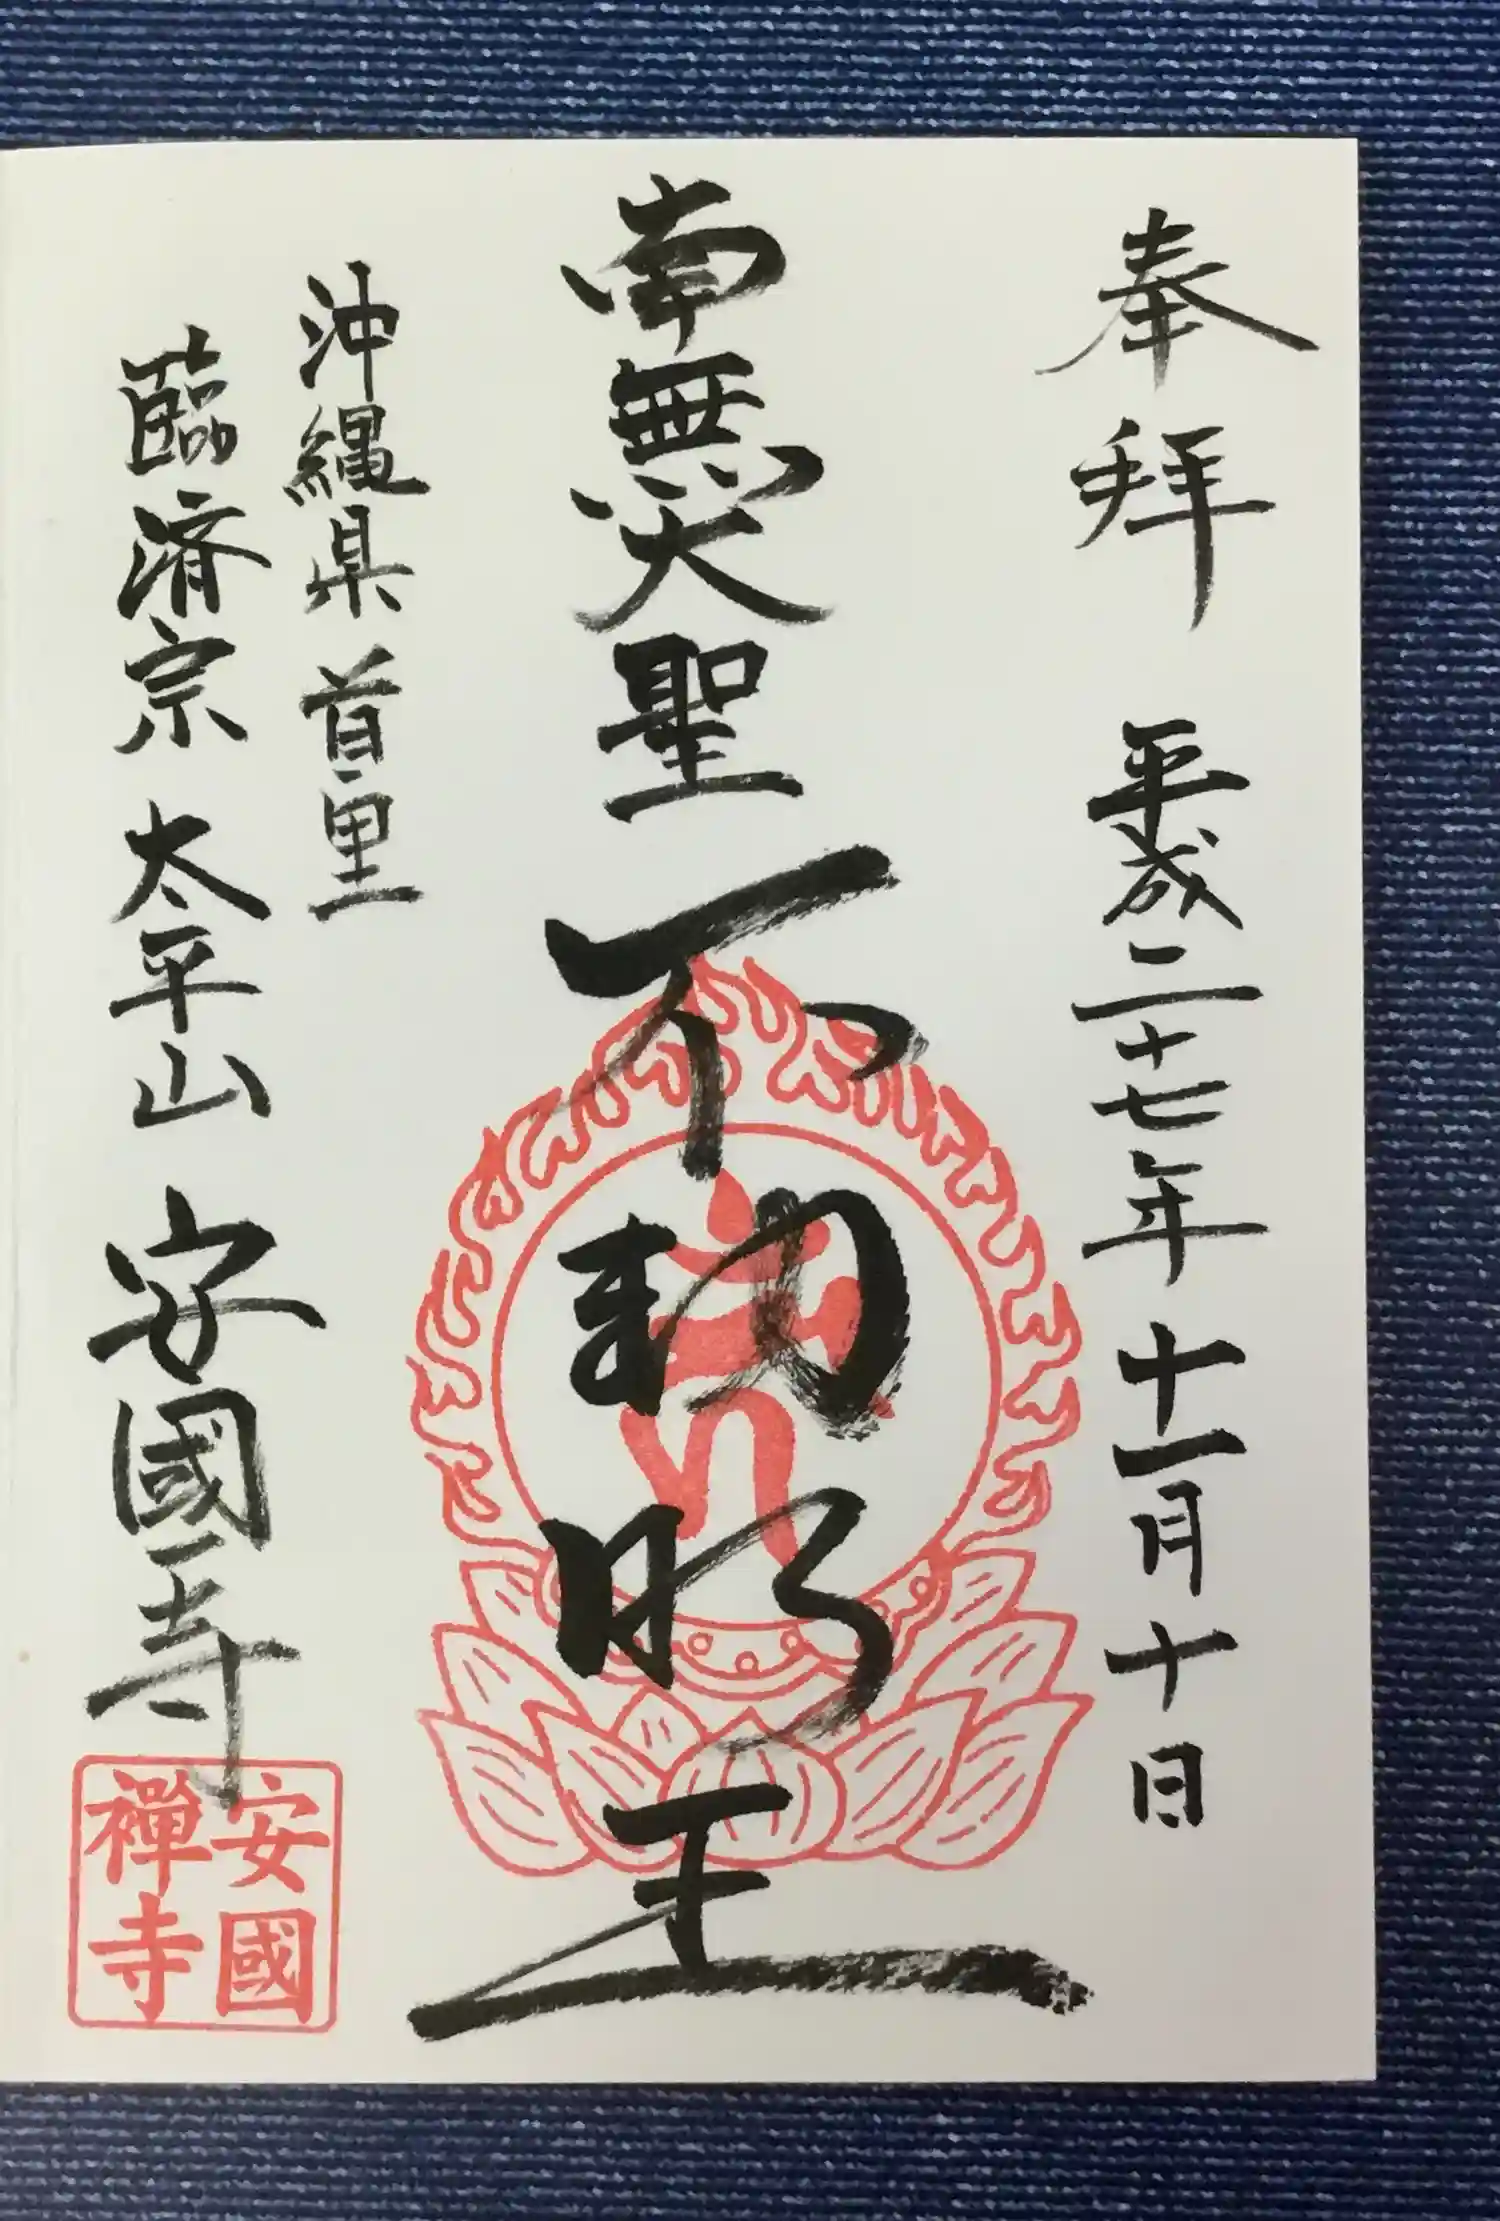 奉拝 平成二十七年十一月十日
南無大聖不動明王
沖縄県首里
臨済宗 太平山 安國寺
安國
禅寺